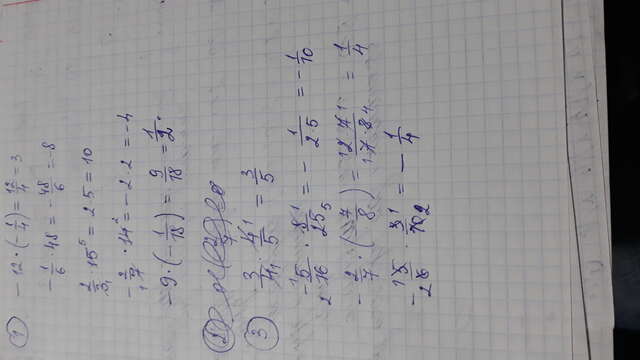 1) -12·(-1/4)=12/4=3
-1/6·48=-48/6=-8
2/3₁·15⁵=2·5=10
-2/₁7·14²=-2·2=-4
-9·(-1/18)=9/18=1/2.
3) 3/4₁·4¹/5=3/5
-¹5/₂16·8¹/25₅=-1/2·5=-1/10
-2/7·(-7/8)=¹2·7¹/₁7·8₄=1/4
-¹5/₂6·3¹/10₂=-1/4